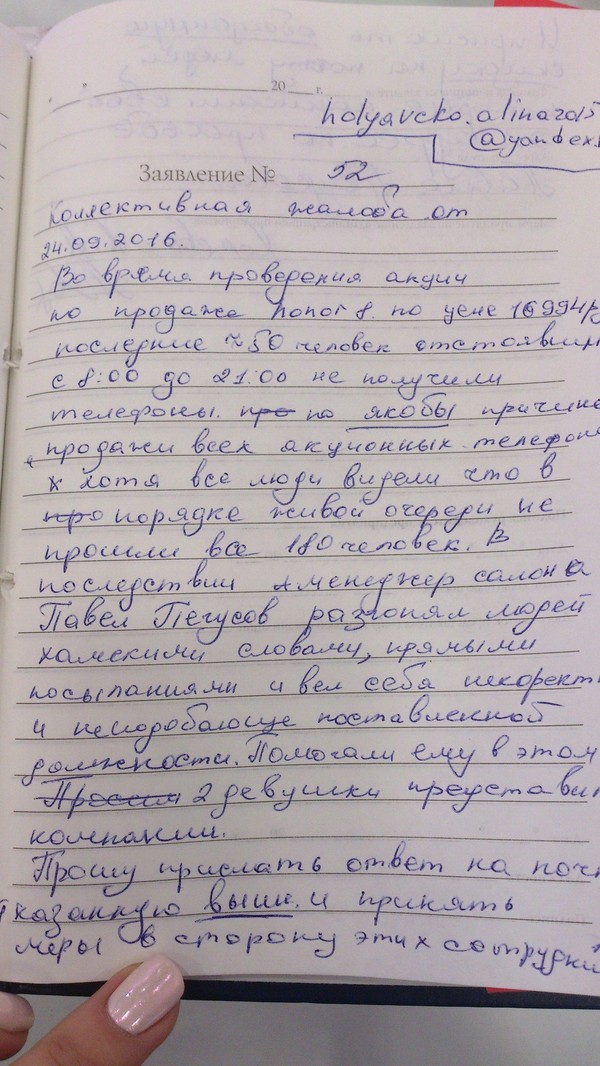 20 г.
holyavcko.alina2015
@yandex.
Заявление № 52
Коллективная жалоба от
24.09.2016.
Во время проведения акции
по продаже honor 8. по цене 16994р
последние ≈50 человек отстоявши
с 8:00 до 21:00 не получили
телефоны. про по якобы причине
продажи всех акционных телефон
х хотя все люди видели что в
про порядке живой очереди не
прошли все 180 человек. В
последствии менеджер салона
Павел Пегусов разгонял людей
хамскими словами, прямыми
посыланиями и вел себя некорект
и неподобающе поставленной
должности. Помогали ему в этом
Просим 2 девушки представи
компании.
Прошу прислать ответ на почт
указанную выше. и принять
меры в сторону этих сотрудни